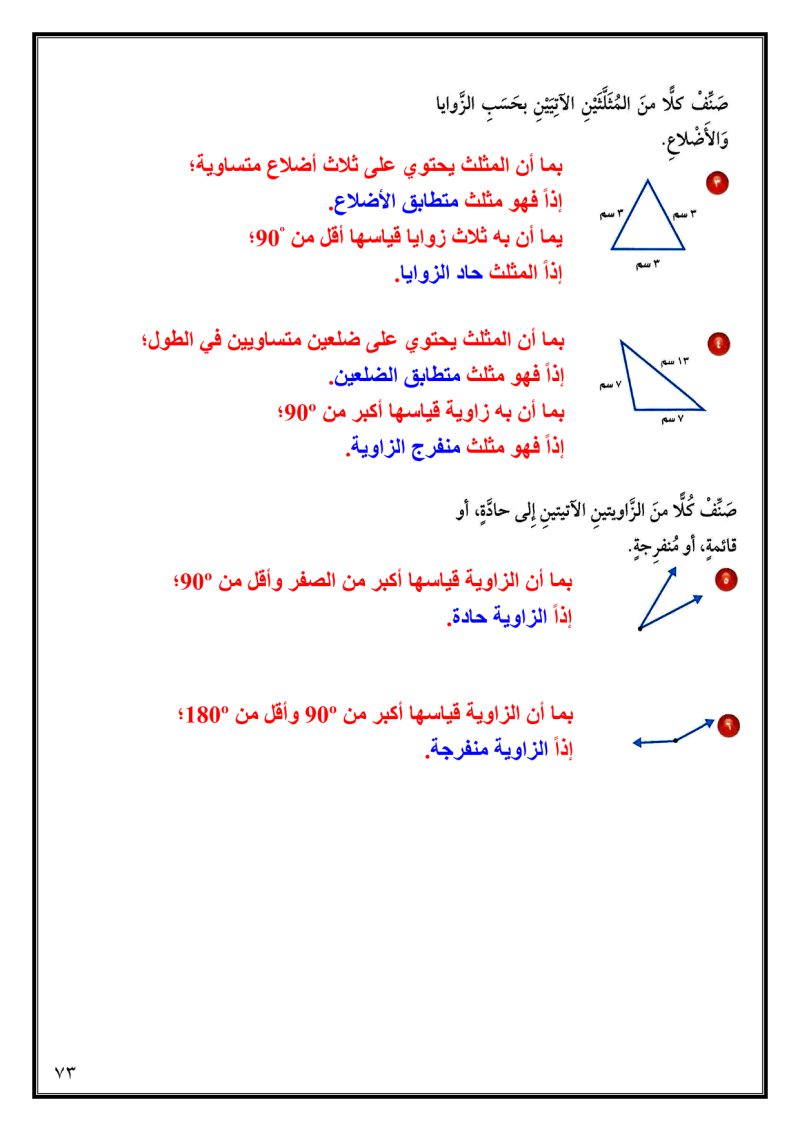 صَنِّفْ كلًّا منَ المُثَلَّثَيْنِ الآتِيَيْنِ بحَسَبِ الزَّوايا
وَالأَضْلاعِ.
٣
بما أن المثلث يحتوي على ثلاث أضلاع متساوية؛
إذاً فهو مثلث متطابق الأضلاع.
يما أن به ثلاث زوايا قياسها أقل من 90°؛
إذاً المثلث حاد الزوايا.
٣ سم
٣ سم
٣ سم
٤
بما أن المثلث يحتوي على ضلعين متساويين في الطول؛
إذاً فهو مثلث متطابق الضلعين.
بما أن به زاوية قياسها أكبر من 90º؛
إذاً فهو مثلث منفرج الزاوية.
١٣ سم
٧ سم
٧ سم
صَنِّفْ كُلًّا منَ الزَّاويتينِ الآتيتينِ إِلى حادَّةٍ، أو
قائمةٍ، أو مُنفرِجةٍ.
٥
بما أن الزاوية قياسها أكبر من الصفر وأقل من 90º؛
إذاً الزاوية حادة.
٦
بما أن الزاوية قياسها أكبر من 90º وأقل من 180º؛
إذاً الزاوية منفرجة.
٧٣